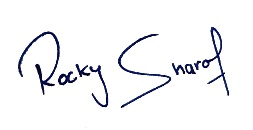 Rocky Sharof